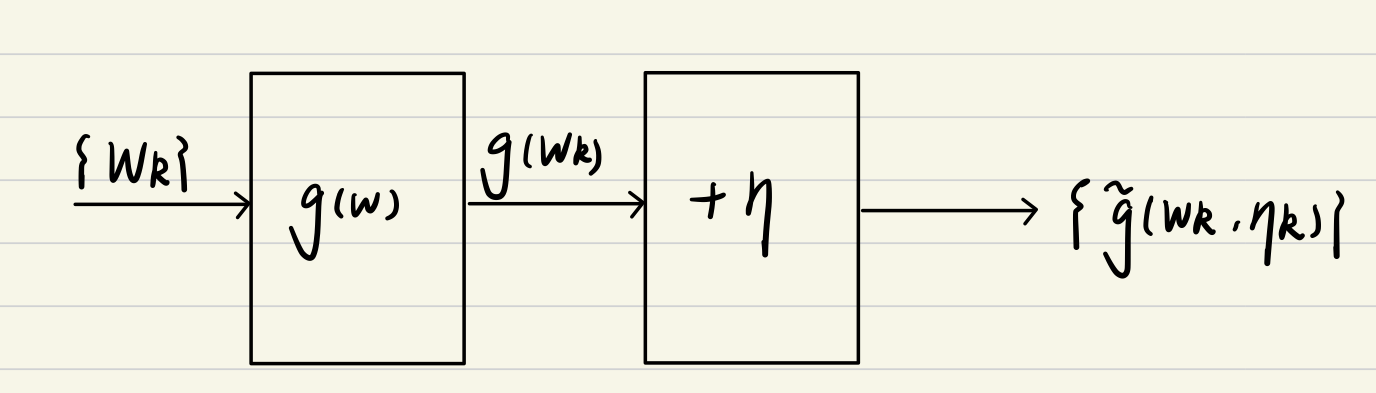 {Wk}
g(w)
g(Wk)
+ η
{g̃(Wk, ηk)}